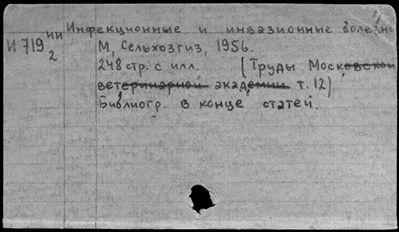 ИИ Инфекционные и инвазионные болезни
И 719 2 М, Сельхозгиз, 1956.
248 стр. с илл. (Труды Московской
ветеринарной академии т. 12)
Библиогр. в конце статей.